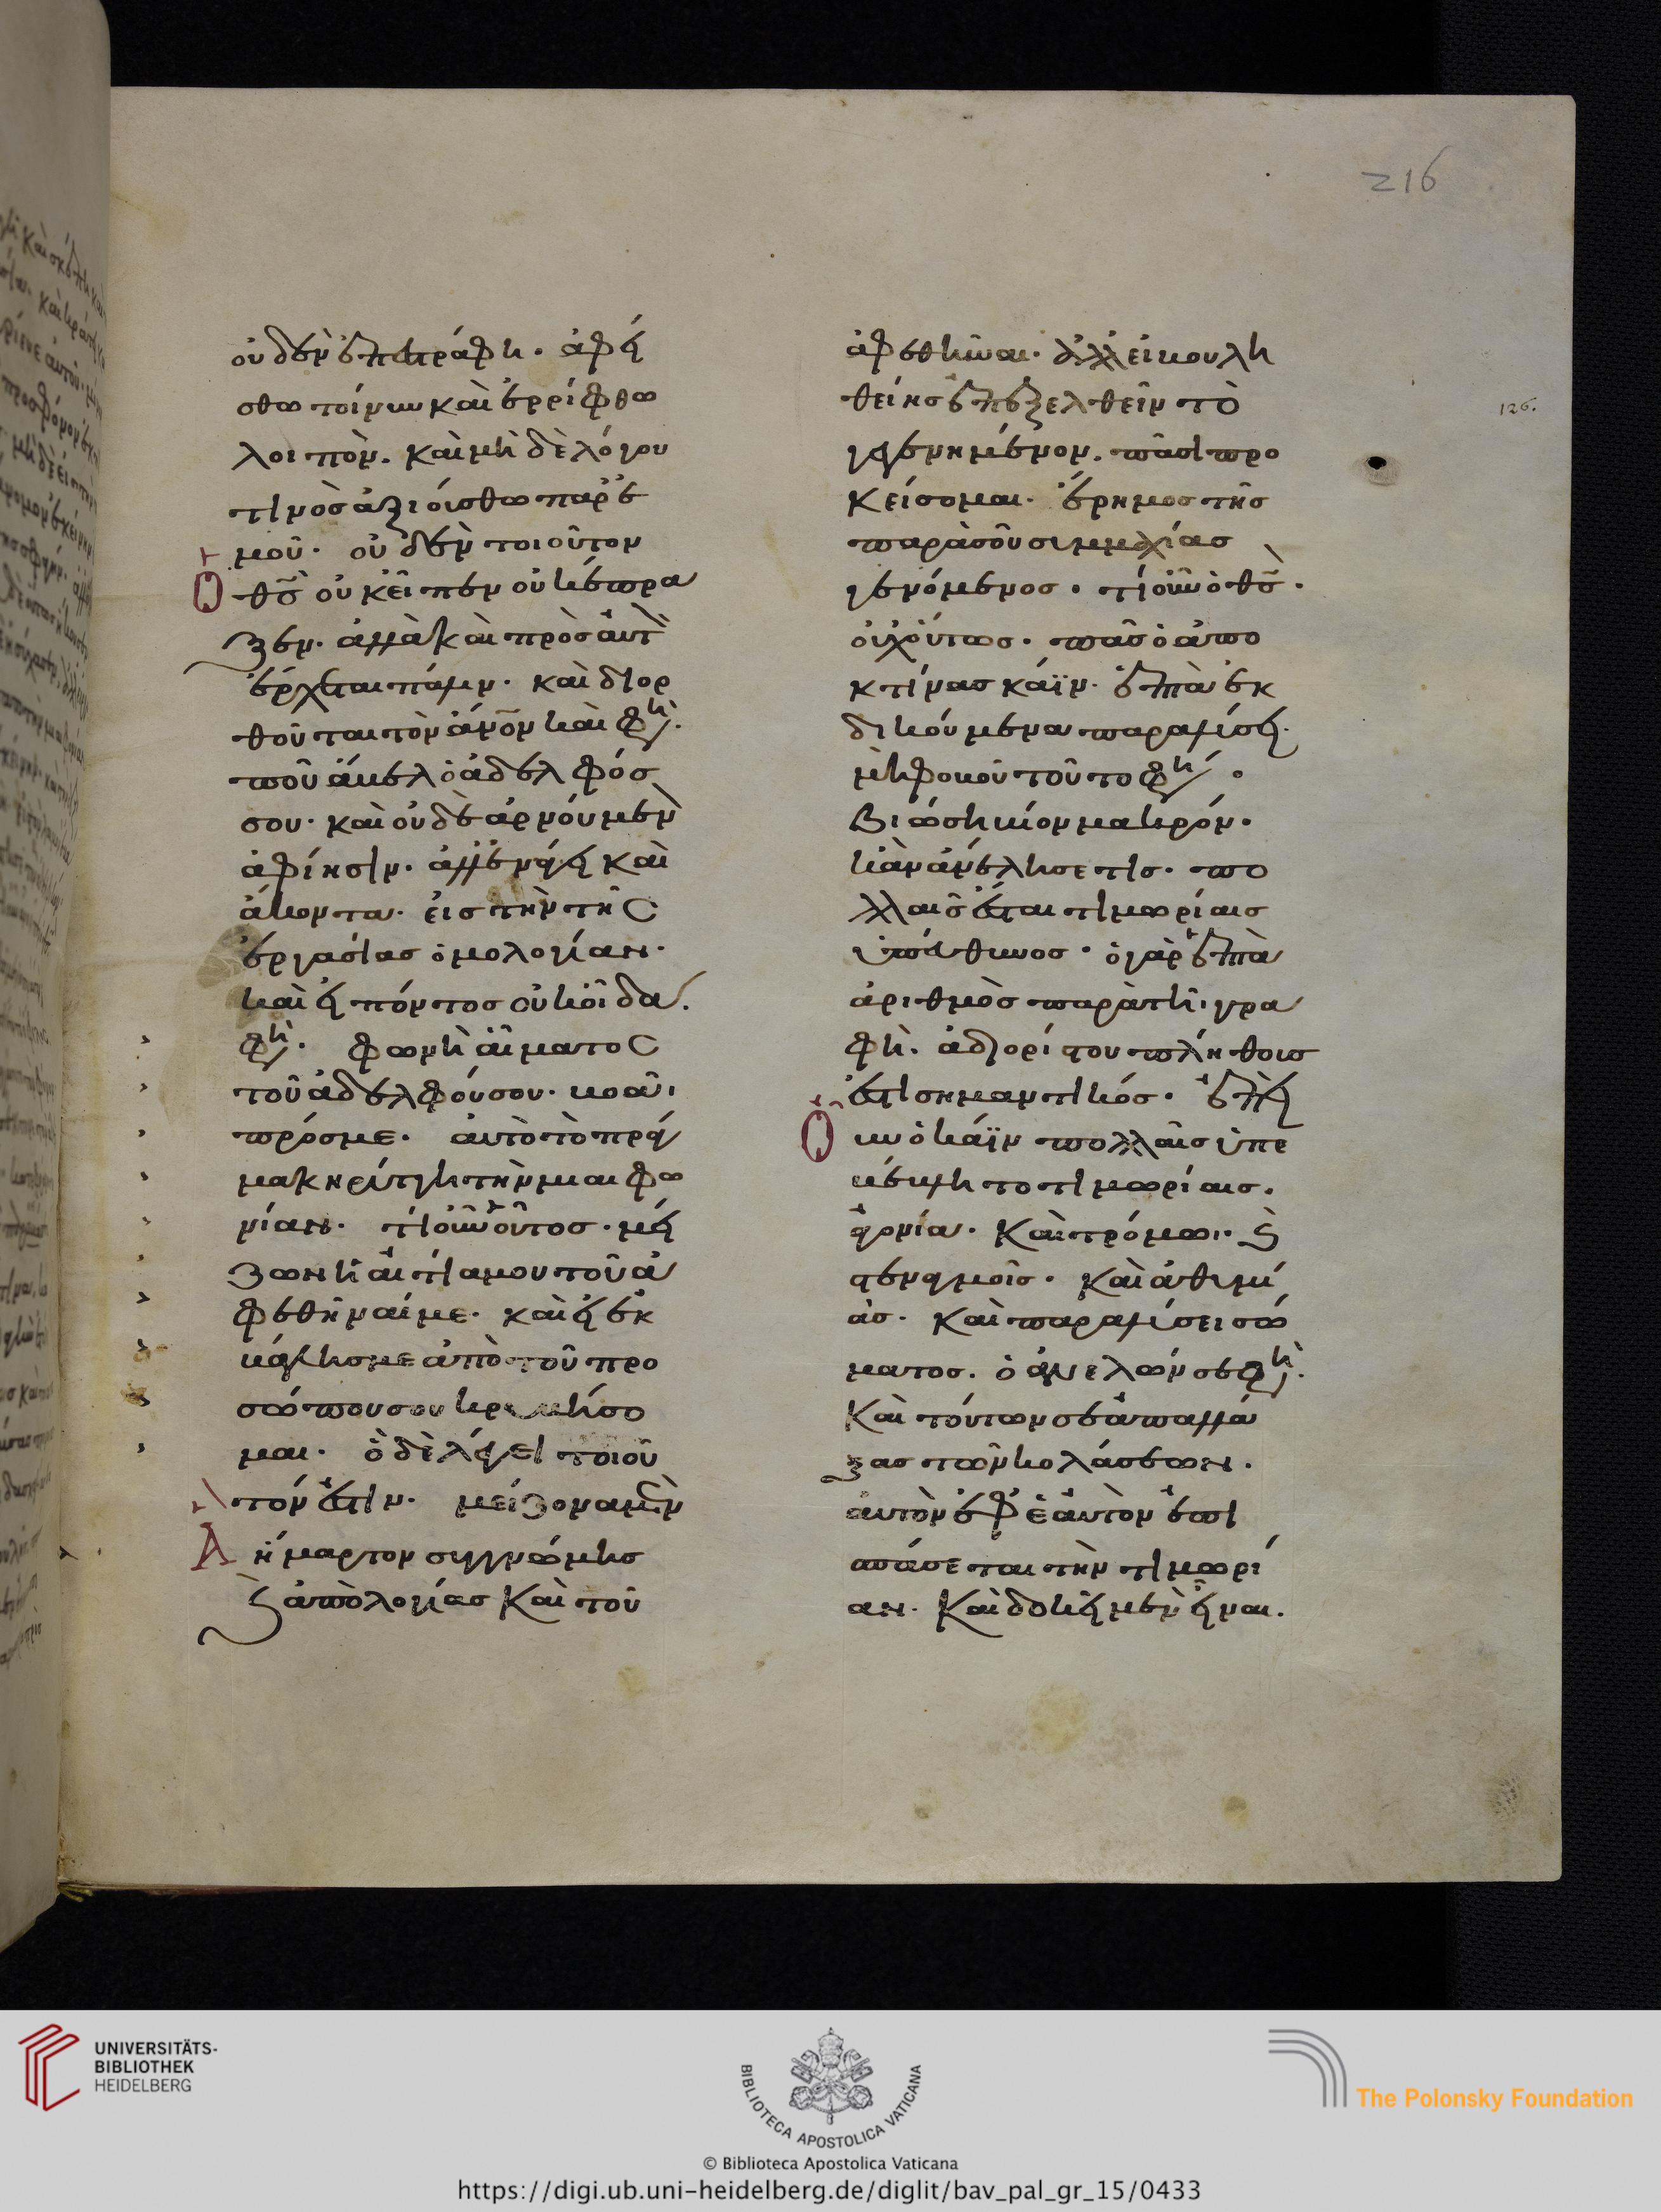 216
126.
οὐδὲν ἐπεγράφη. ἀφεί
σθω τοίνυν καὶ ἐρρίφθω
λοιπὸν. καὶ μὴ δὲ λόγου
τινὸς ἀξιούσθω παρ' ἐ
μοῦ. οὐδὲν τοιοῦτον
Ὁ θς οὐκ εἶπεν οὐκ ἔπρα
ξεν. ἀλλὰ καὶ πρὸς αὐτὸν
ἔρχεται πάλιν. καὶ διορ
θοῦται τὸν ἄνον καὶ φη.
ποῦ ἄβελ ὁ ἀδελφός
σου. καὶ οὐδὲ ἀρνούμενον
ἀφίησιν. ἀλλ' ἐνάγει καὶ
ἄκοντα. εἰς τὴν τῆς
ἐργασίας ὁμολογίαν.
καὶ εἰπόντος οὐκ οἶδα.
φη. φωνὴ αἵματος
τοῦ ἀδελφού σου. βοᾶι
πρός με. αὐτὸ τὸ πρᾶγ
μα κηρύττει τὴν μιαιφο
νίαν. τί οὖν οὗτος. μεί
ζων ἡ αἰτία μου τοῦ ἀ
φεθῆναί με. καὶ εἰ ἐκ
βάλλης με ἀπὸ τοῦ προ
σώπου σου κρυβήσο
μαι. ὃ δὲ λέγει τοιοῦ
τόν ἐστιν. μείζονα μὲν
ἥμαρτον συγγνώμης
καὶ ἀπολογίας καὶ τοῦ
ἀφεθῆναι. ἀλλ' εἰ βουλη
θείης ἐπεξελθεῖν τὸ
γεγενημένον. πᾶσι προ
κείσομαι. ἔρημος τῆς
παρὰ σοῦ συμμαχίας
γενόμενος. τί οὖν ὁ θς.
οὐχ' οὕτως. πᾶς ὁ ἀπο
κτείνας κάϊν. ἑπτὰ ἐκ
δικούμενα παραλύσει.
μὴ φοβοῦ τοῦτο φη.
βιώση βίον μακρόν.
κἂν ἀνέλη σε τις. πο
λλαῖς ἔσται τιμωρίαις
ὑπεύθυνος. ὁ γὰρ ἑπτὰ
ἀριθμὸς παρὰ τῆι γρα
φῆ. ἀδιορίστου πλήθους
ἐστὶ σημαντικός. ἐπεὶ
οὖν ὁ κάϊν πολλαῖς ὑπε
βέβλητο τιμωρίαις.
ἀγωνία. καὶ τρόμωι. καὶ
στεναγμοῖς. καὶ ἀθυμί
ας. καὶ παραλύσει σώ
ματος. ὁ ἀνελών σε φη.
καὶ τούτων σε ἀπαλλά
ξας τῶν κολάσεων.
αὐτὸν ἐφ' ἑαυτὸν ἐπι
σπάσεται τὴν τιμωρί
αν. καὶ δοκεῖ μὲν εἶναι.
UNIVERSITÄTS-
BIBLIOTHEK
HEIDELBERG
BIBLIOTECA APOSTOLICA VATICANA
© Biblioteca Apostolica Vaticana
The Polonsky Foundation
https://digi.ub.uni-heidelberg.de/diglit/bav_pal_gr_15/0433